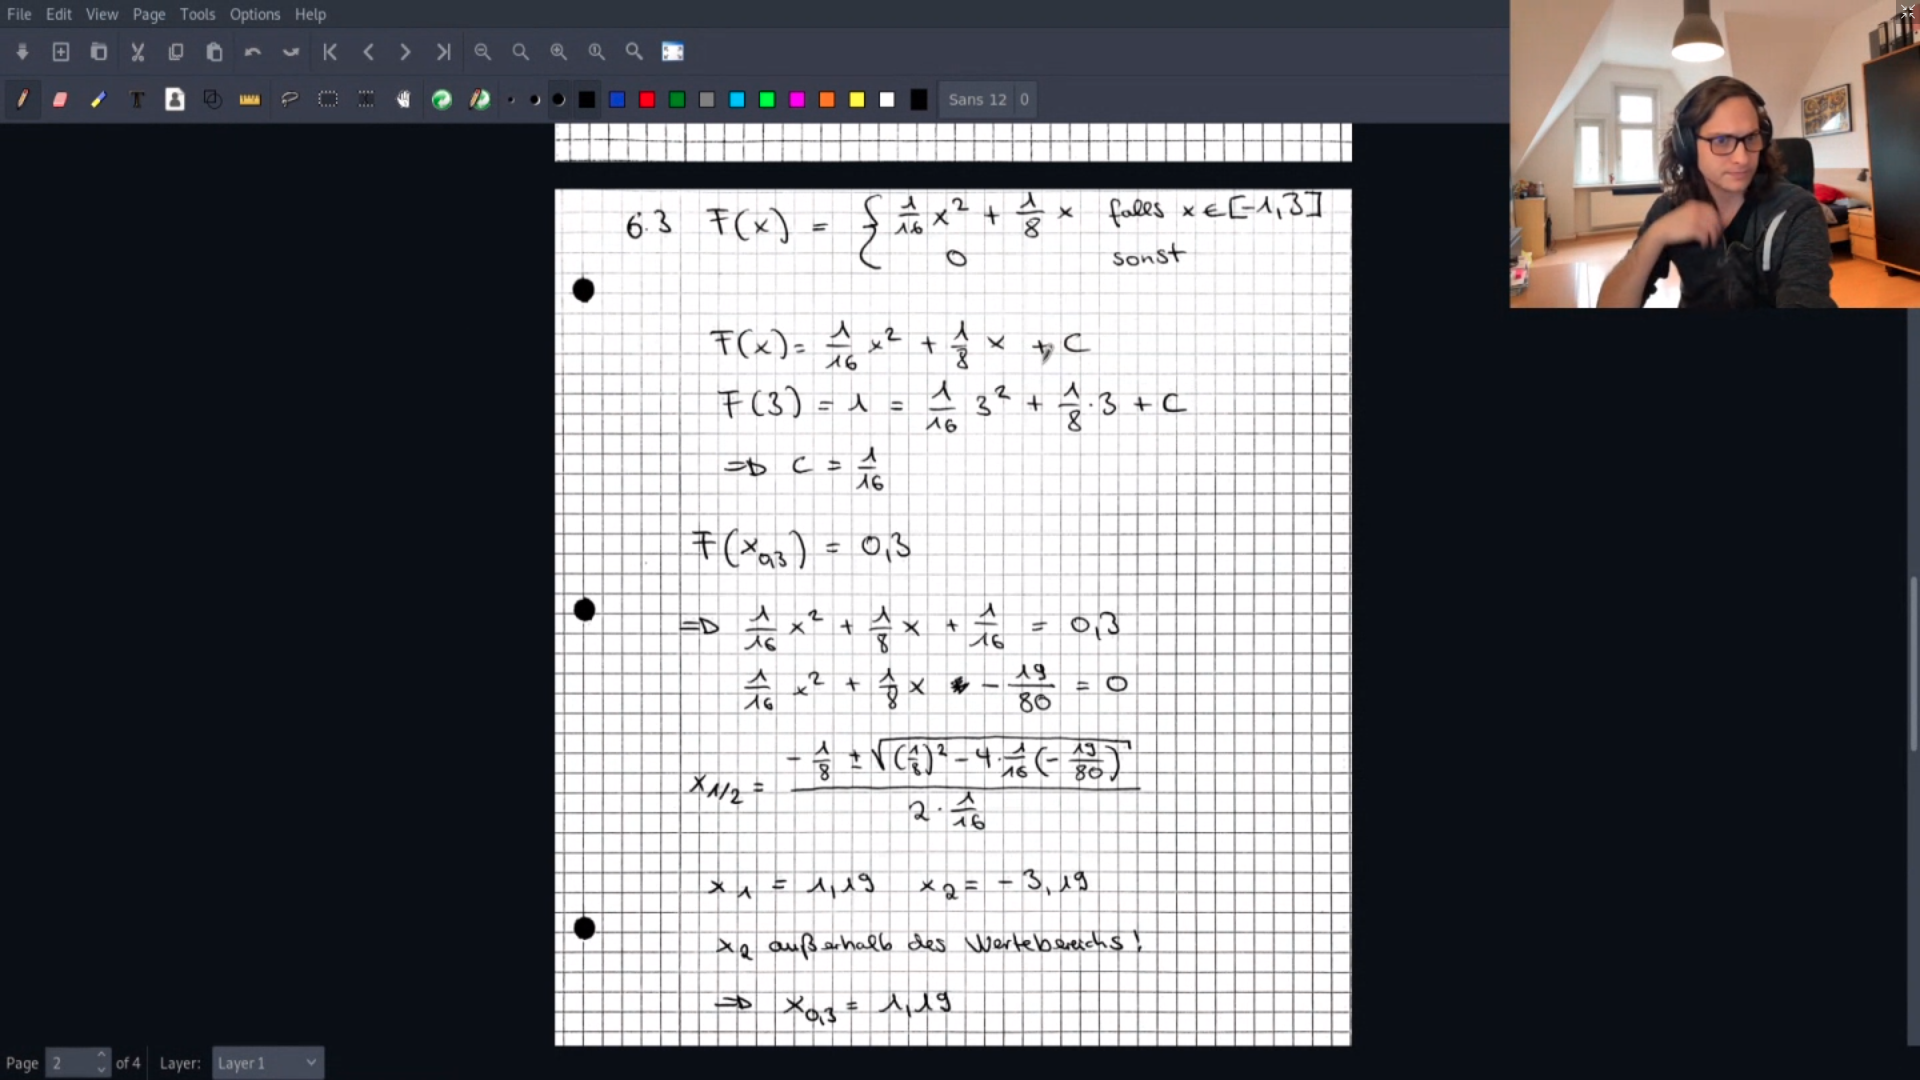 File Edit View Page Tools Options Help
Sans 12 0
6.3 F(x) = { 1/16 x² + 1/8 x falls x ∈ [-1, 3]
0 sonst
F(x) = 1/16 x² + 1/8 x + C
F(3) = 1 = 1/16 3² + 1/8 · 3 + C
=> C = 1/16
F(x0,3) = 0,3
=> 1/16 x² + 1/8 x + 1/16 = 0,3
1/16 x² + 1/8 x - 19/80 = 0
x1/2 = (-1/8 ± √((1/8)² - 4 · 1/16 (-19/80))) / (2 · 1/16)
x1 = 1,19 x2 = -3,19
x2 außerhalb des Wertebereichs!
=> x0,3 = 1,19
Page 2 of 4 Layer: Layer 1